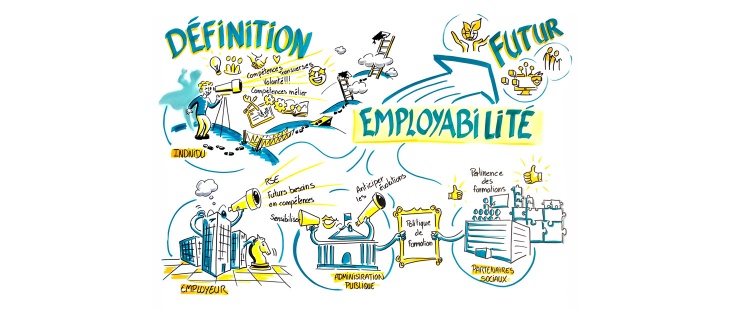 DÉFINITION
FUTUR
Compétences transverses
Volonté!!!
Compétences métier
EMPLOYABILITÉ
INDIVIDU
RSE
Futurs besoins
en compétences
Sensibiliser
Anticiper
les évolutions
Politique
de
Formation
Pertinence
des
formations
EMPLOYEUR
ADMINISTRATION
PUBLIQUE
PARTENAIRES
SOCIAUX